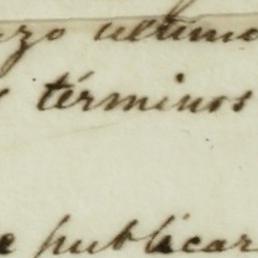 último
términos
publicar